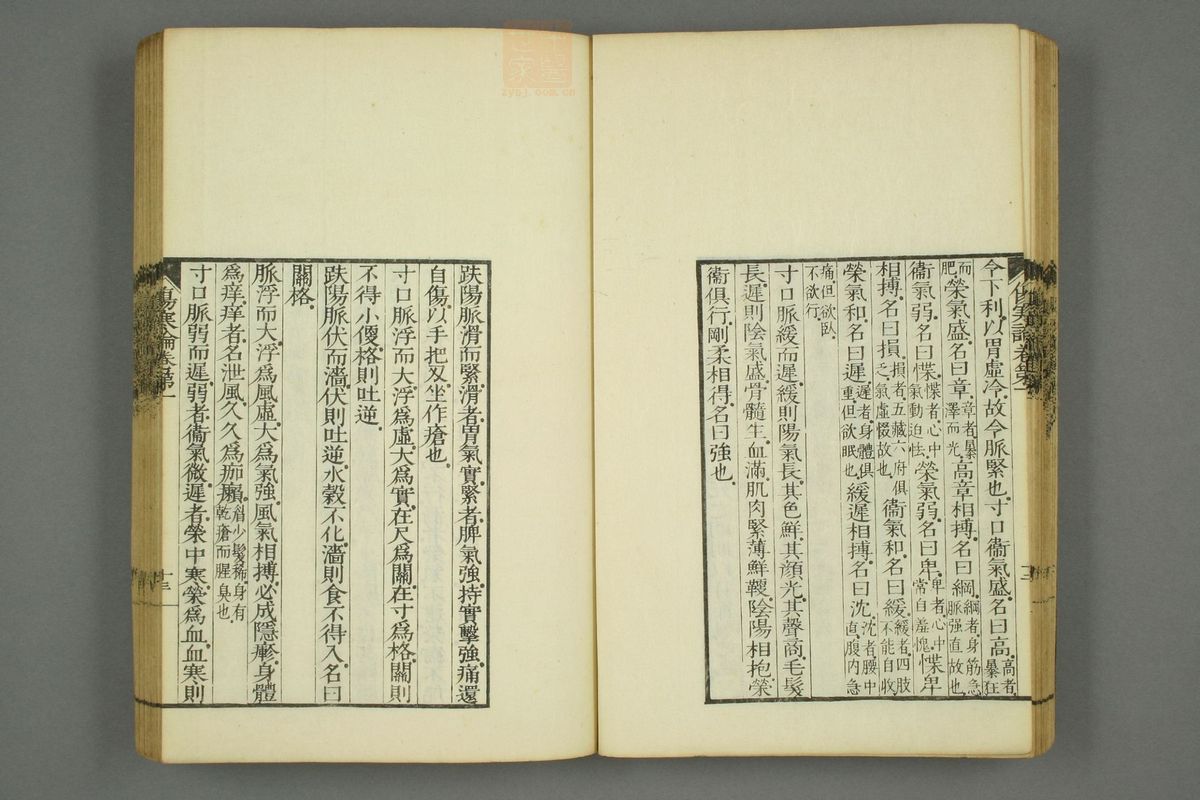 今下利。以胃虛冷。故令脈緊也。寸口衞氣盛。名曰高。高者。暴狂
而肥。榮氣盛。名曰章。章者。暴澤而光。高章相搏。名曰綱。綱者。身筋急。脈强直故也。
衞氣弱。名曰惵。惵者。心中氣動迫怯。榮氣弱。名曰卑。卑者。心中常自羞愧。惵卑
相搏。名曰損。損者。五藏六府俱乏氣虛惙故也。衞氣和。名曰緩。緩者。四肢不能自收。
榮氣和。名曰遲。遲者。身體俱重。但欲眠也。緩遲相搏。名曰沈。沈者。腰中直。腹内急
痛。但欲臥。不欲行。
寸口脈緩而遲。緩則陽氣長。其色鮮。其顔光。其聲商。毛髮
長。遲則陰氣盛。骨髓生。血滿。肌肉緊薄鮮鞕。陰陽相抱。榮
衞俱行。剛柔相得。名曰強也。
趺陽脈滑而緊。滑者。胃氣實。緊者。脾氣強。持實擊強。痛還
自傷。以手把刄。坐作瘡也。
寸口脈浮而大。浮爲虛。大爲實。在尺爲關。在寸爲格。關則
不得小便。格則吐逆。
趺陽脈伏而濇。伏則吐逆。水穀不化。濇則食不得入。名曰
關格。
脈浮而大。浮爲風虛。大爲氣強。風氣相搏。必成隱疹。身體
爲痒。痒者。名泄風。久久爲痂癩。眉少髮稀。身有乾瘡而腥臭也。
寸口脈弱而遲。弱者。衞氣微。遲者。榮中寒。榮爲血。血寒則
十三
中醫世家
zysj.com.cn